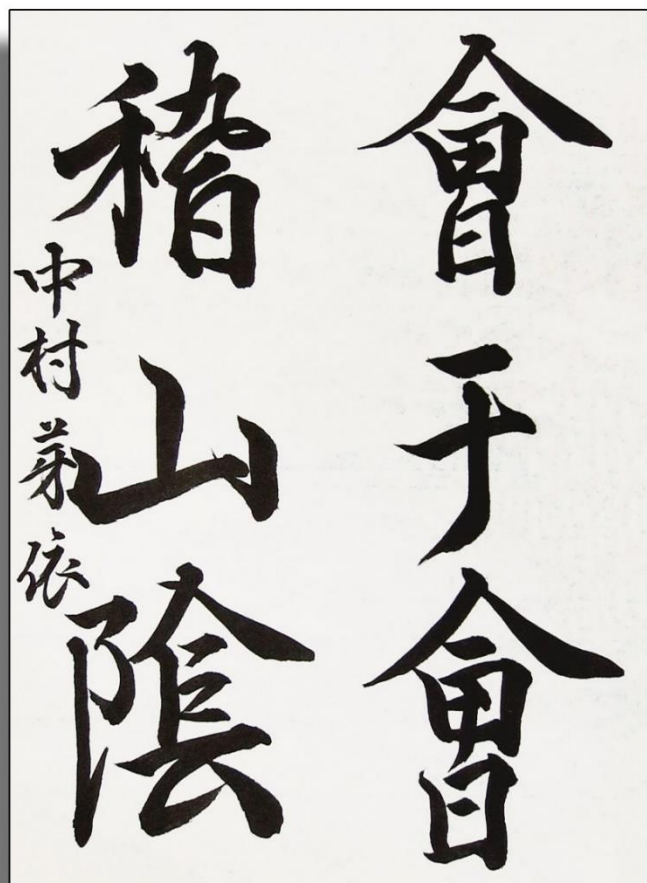 會于會
稽山陰
中村菜依